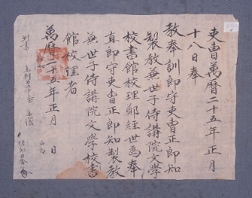 吏曹萬曆二十五年正月
十八日奉
敎奉訓郎守吏曹正郎知
製敎兼世子侍講院文學
校書館校理鄭經世爲奉
直郎守吏曹正郎知製敎
兼世子侍講院文學校書
館校理者
萬曆二十五年正月 日